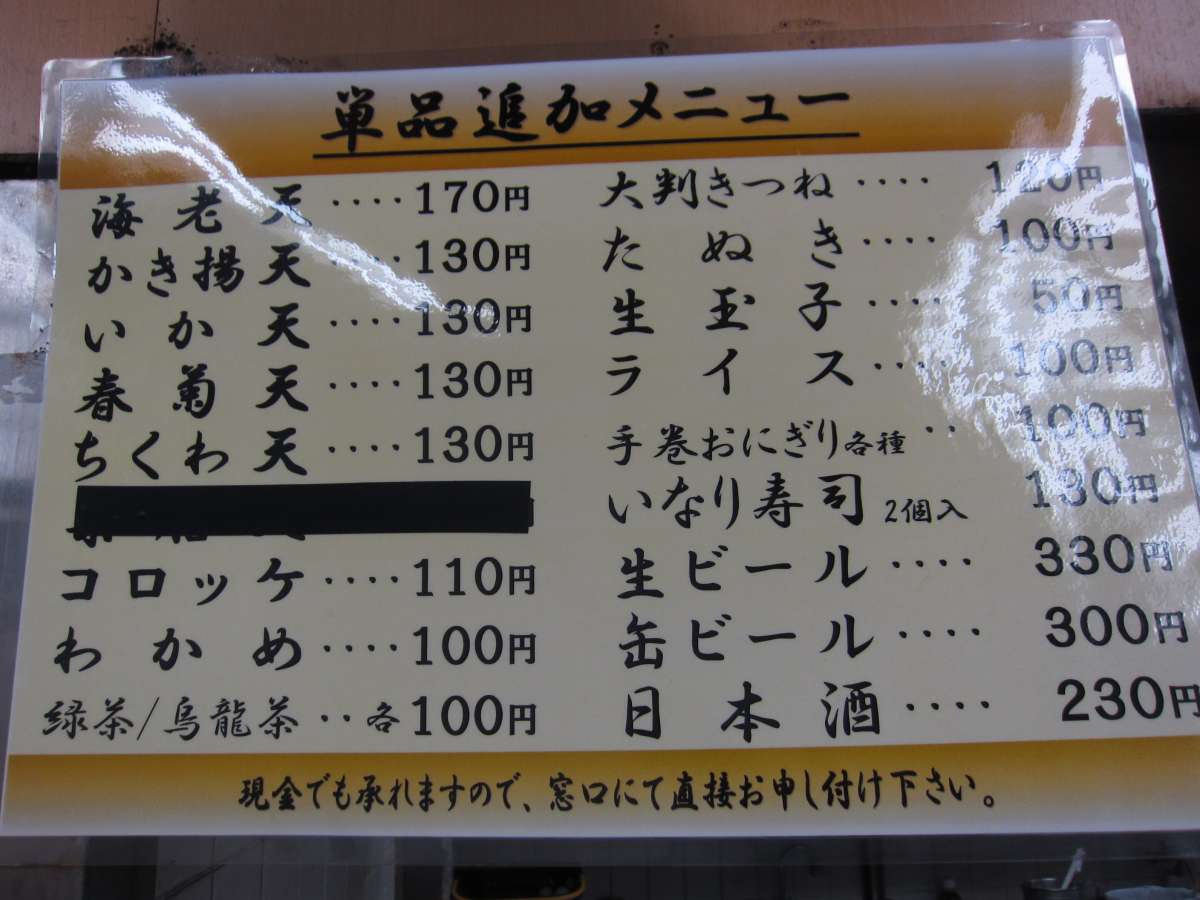 単品追加メニュー
海老天‥‥170円
かき揚天‥‥130円
いか天‥‥130円
春菊天‥‥130円
ちくわ天‥‥130円
コロッケ‥‥110円
わかめ‥‥100円
緑茶/烏龍茶‥各100円
大判きつね‥‥120円
たぬき‥‥100円
生玉子‥‥50円
ライス‥‥100円
手巻おにぎり各種‥100円
いなり寿司 2個入 130円
生ビール‥‥330円
缶ビール‥‥300円
日本酒‥‥230円
現金でも承れますので、窓口にて直接お申し付け下さい。